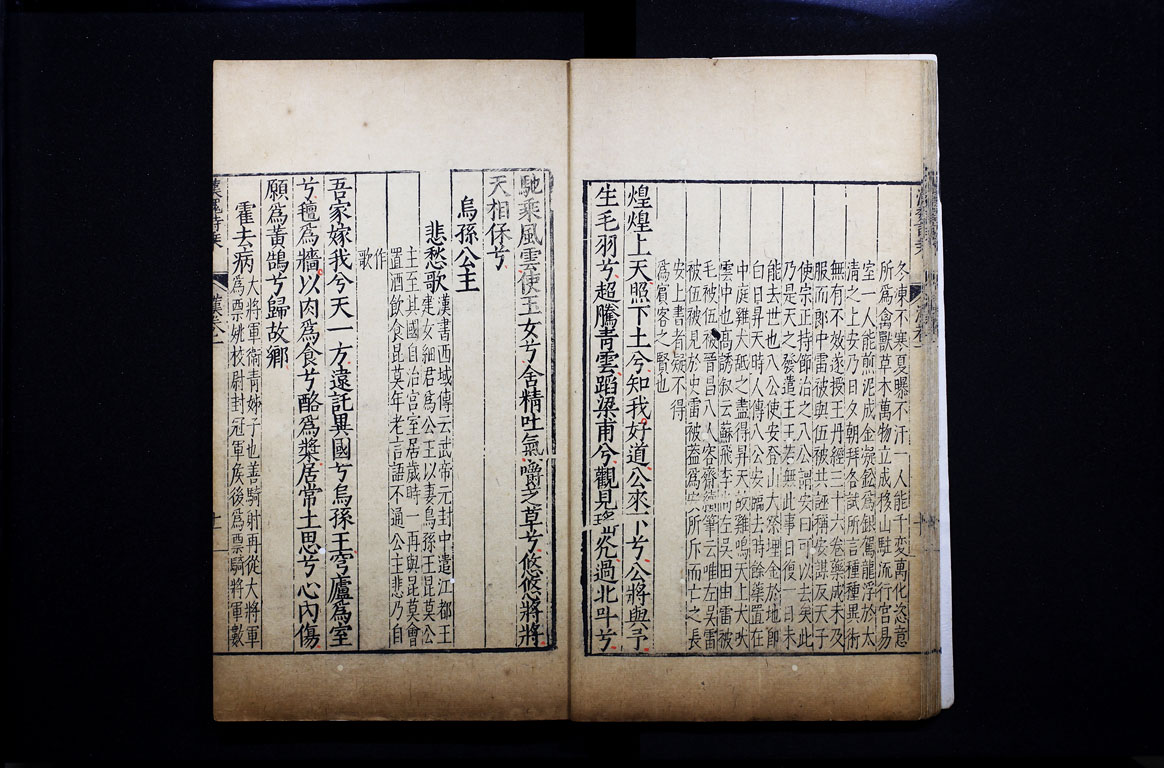 冬凍不寒夏曝不汗一人能千變萬化恣意
所爲禽獸草木萬物立成移山駐流行宫易
室一人能煎泥成金凝鈆爲銀駕龍浮於太
清之上安乃日夕朝拜各試所言種種異術
無有不效遂授王丹經三十六卷藥成未及
服而郎中雷被與伍被共誣稱安謀反天子
使宗正持節治之八公謂安曰可以去矣此
乃是天之發遣王王若無此事日復一日未
能去世也八公使安登山大祭埋金於地即
白日昇天時人傳八公安臨去時餘藥置在
中庭雞犬䑛之盡得昇天故雞鳴天上犬吠
雲中也高誘叙云蘇飛李尚左吳田由雷被
毛被伍被晉昌八人容齋續筆云唯左吳雷
被伍被見於史雷被葢爲安所斥而亡之長
安上書者疑不得
爲賓客之賢也
煌煌上天照下土兮知我好道公來下兮公將與予
生毛羽兮超騰青雲蹈梁甫兮觀見瑤光過北斗兮
馳乘風雲使玉女兮含精吐氣嚼芝草兮悠悠將將
天相保兮
烏孫公主
悲愁歌漢書西域傳云武帝元封中遣江都王
建女細君爲公主以妻烏孫王昆莫公
主至其國自治宫室居歲時一再與昆莫會
置酒飲食昆莫年老言語不通公主悲乃自
作
歌
吾家嫁我兮天一方遠託異國兮烏孫王穹廬爲室
兮氊爲牆以肉爲食兮酪爲漿居常土思兮心內傷
願爲黃鵠兮歸故鄉
霍去病大將軍衞青姊子也善騎射再從大將軍
爲票姚校尉封冠軍矦後爲票騎將軍數
漢魏詩乘 漢卷一 十一